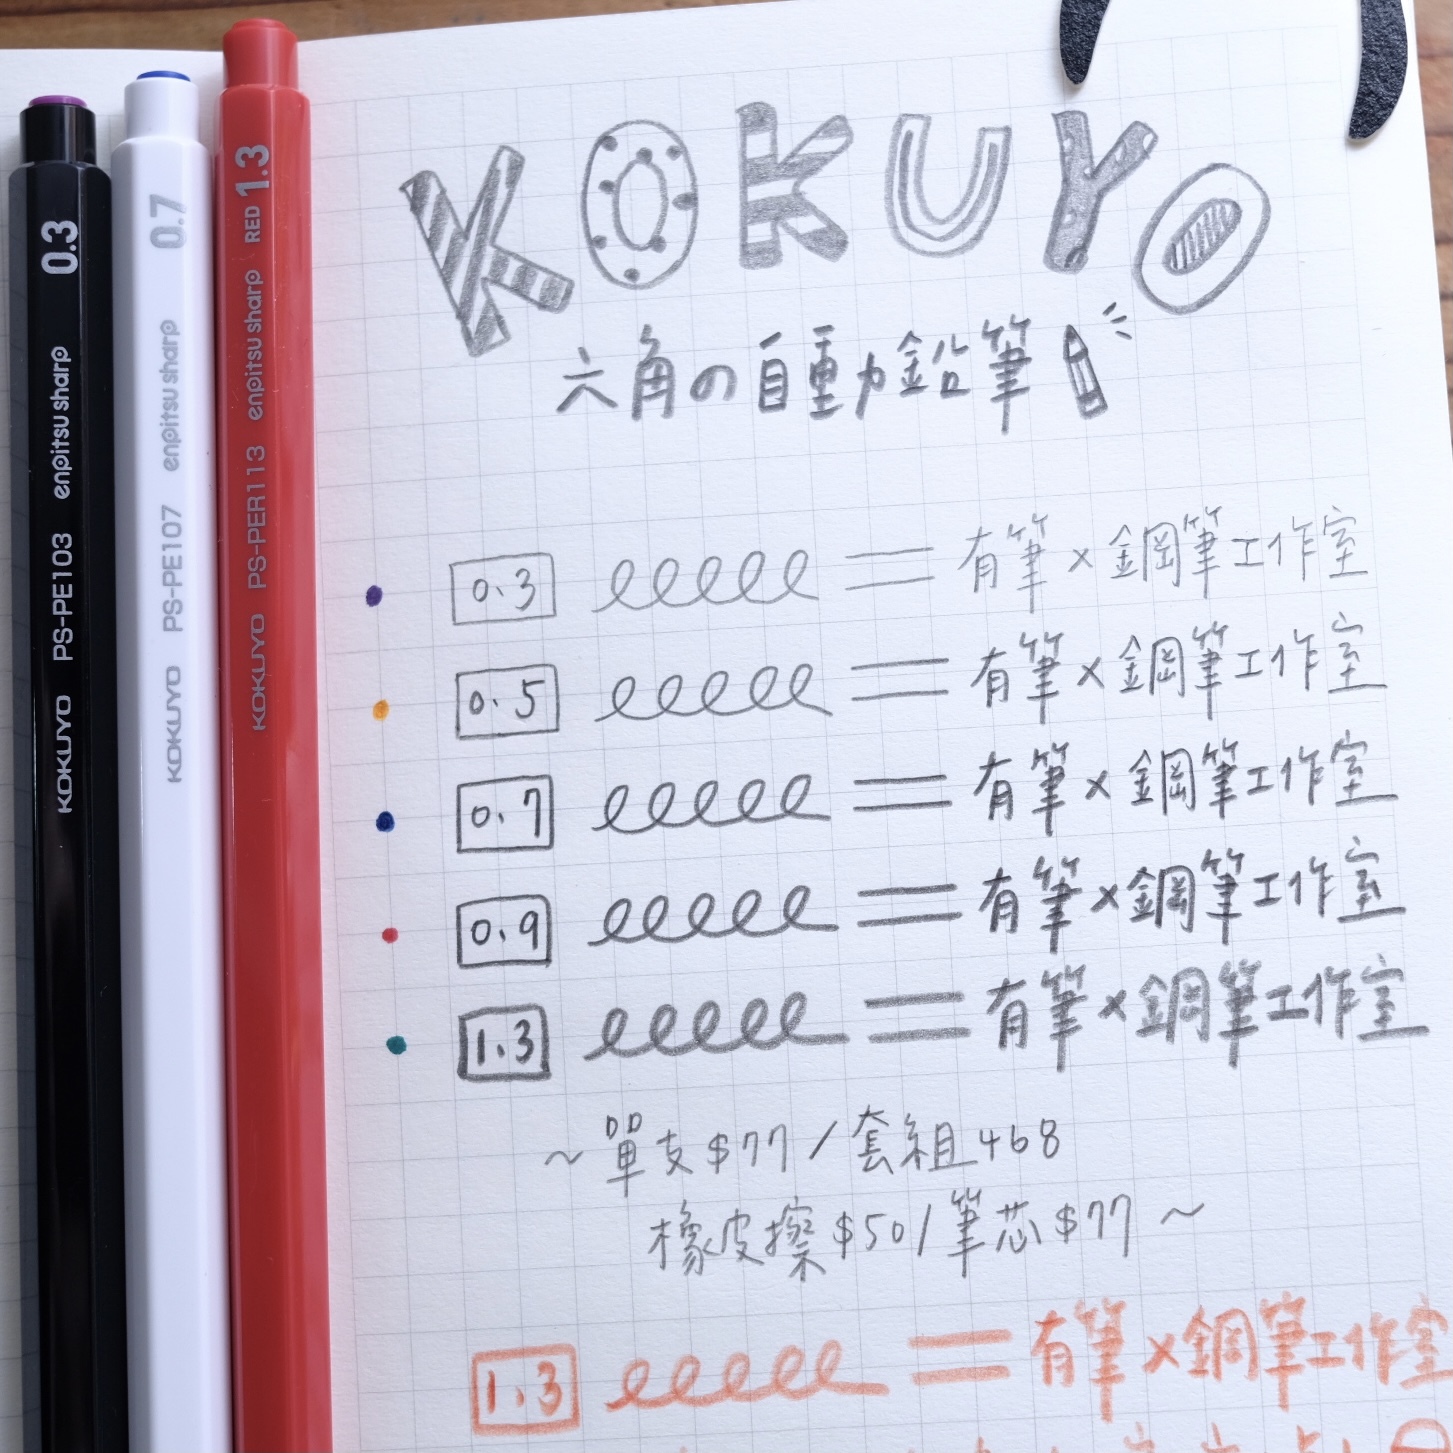 KOKUYO PS-PE103 enpitsu sharp 0.3
KOKUYO PS-PE107 enpitsu sharp 0.7
KOKUYO PS-PER113 enpitsu sharp RED 1.3
KOKUYO
六角の自動鉛筆
0.3 有筆×鋼筆工作室
0.5 有筆×鋼筆工作室
0.7 有筆×鋼筆工作室
0.9 有筆×鋼筆工作室
1.3 有筆×鋼筆工作室
~單支$77/套組468
橡皮擦$50/筆芯$77~
1.3 有筆×鋼筆工作室